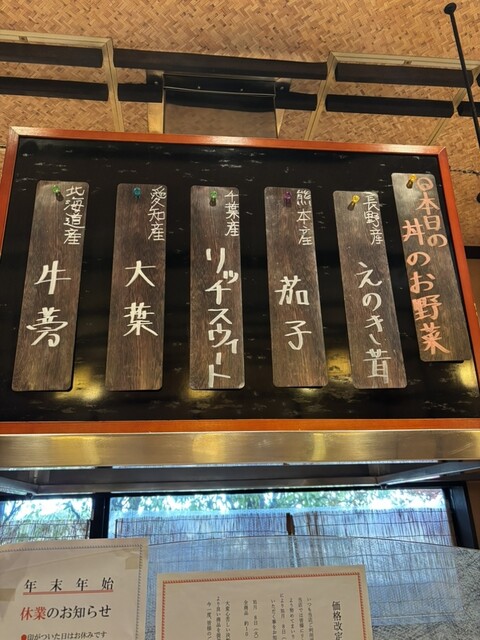 日本日の
丼のお野菜
長野産
えのき茸
熊本産
茄子
千葉産
リッチスウィート
愛知産
大葉
北海道産
牛蒡
年末年始
休業のお知らせ
●印がついた日はお休みです
価格改定